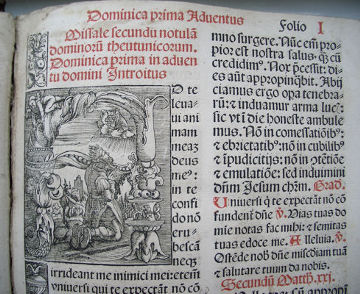 Dominica prima Aduentus
Folio I
Missale secundu notulã
dominorũ theutunicorum.
Dominica prima in aduen
tu domini Introitus
D te
leua-
ui ani
mam
meaʒ
deus
me⁹:
in te
confi
do nõ
eru-
bescã
necʒ
irrideant me mimici mei: etem̃
vniuersi qui te expectãt nõ cõ
mno surgere. Nũc em̃ pro-
pior est nostra salus qʒ cũ
credidim⁹. Nox p̃cessit: di-
es aũt appropinq̃bit. Abij
ciamus ergo opa tenebra-
rũ: ⁊ induamur arma luc:
sic vti die honeste ambule
mus. Nõ in comessatiõib⁹:
⁊ ebrietatib⁹: nõ in cubilib⁹
⁊ ipudicitijs: nõ in ꝯtẽtiõe
⁊ emulatiõe: sed induimini
dñm Jesum chr̃m. Grad.
Uniuersi q̃ te expectãt nõ cõ
fundent dñe ℣. Vias tuas do
mie notas fac mihi: ⁊ semitas
tuas edoce me. Alleluia. ℣.
Ostẽde nob̃ dñe miscdiam tuã
⁊ salutare tuum da nobis.
Secundũ Matth. xxj.